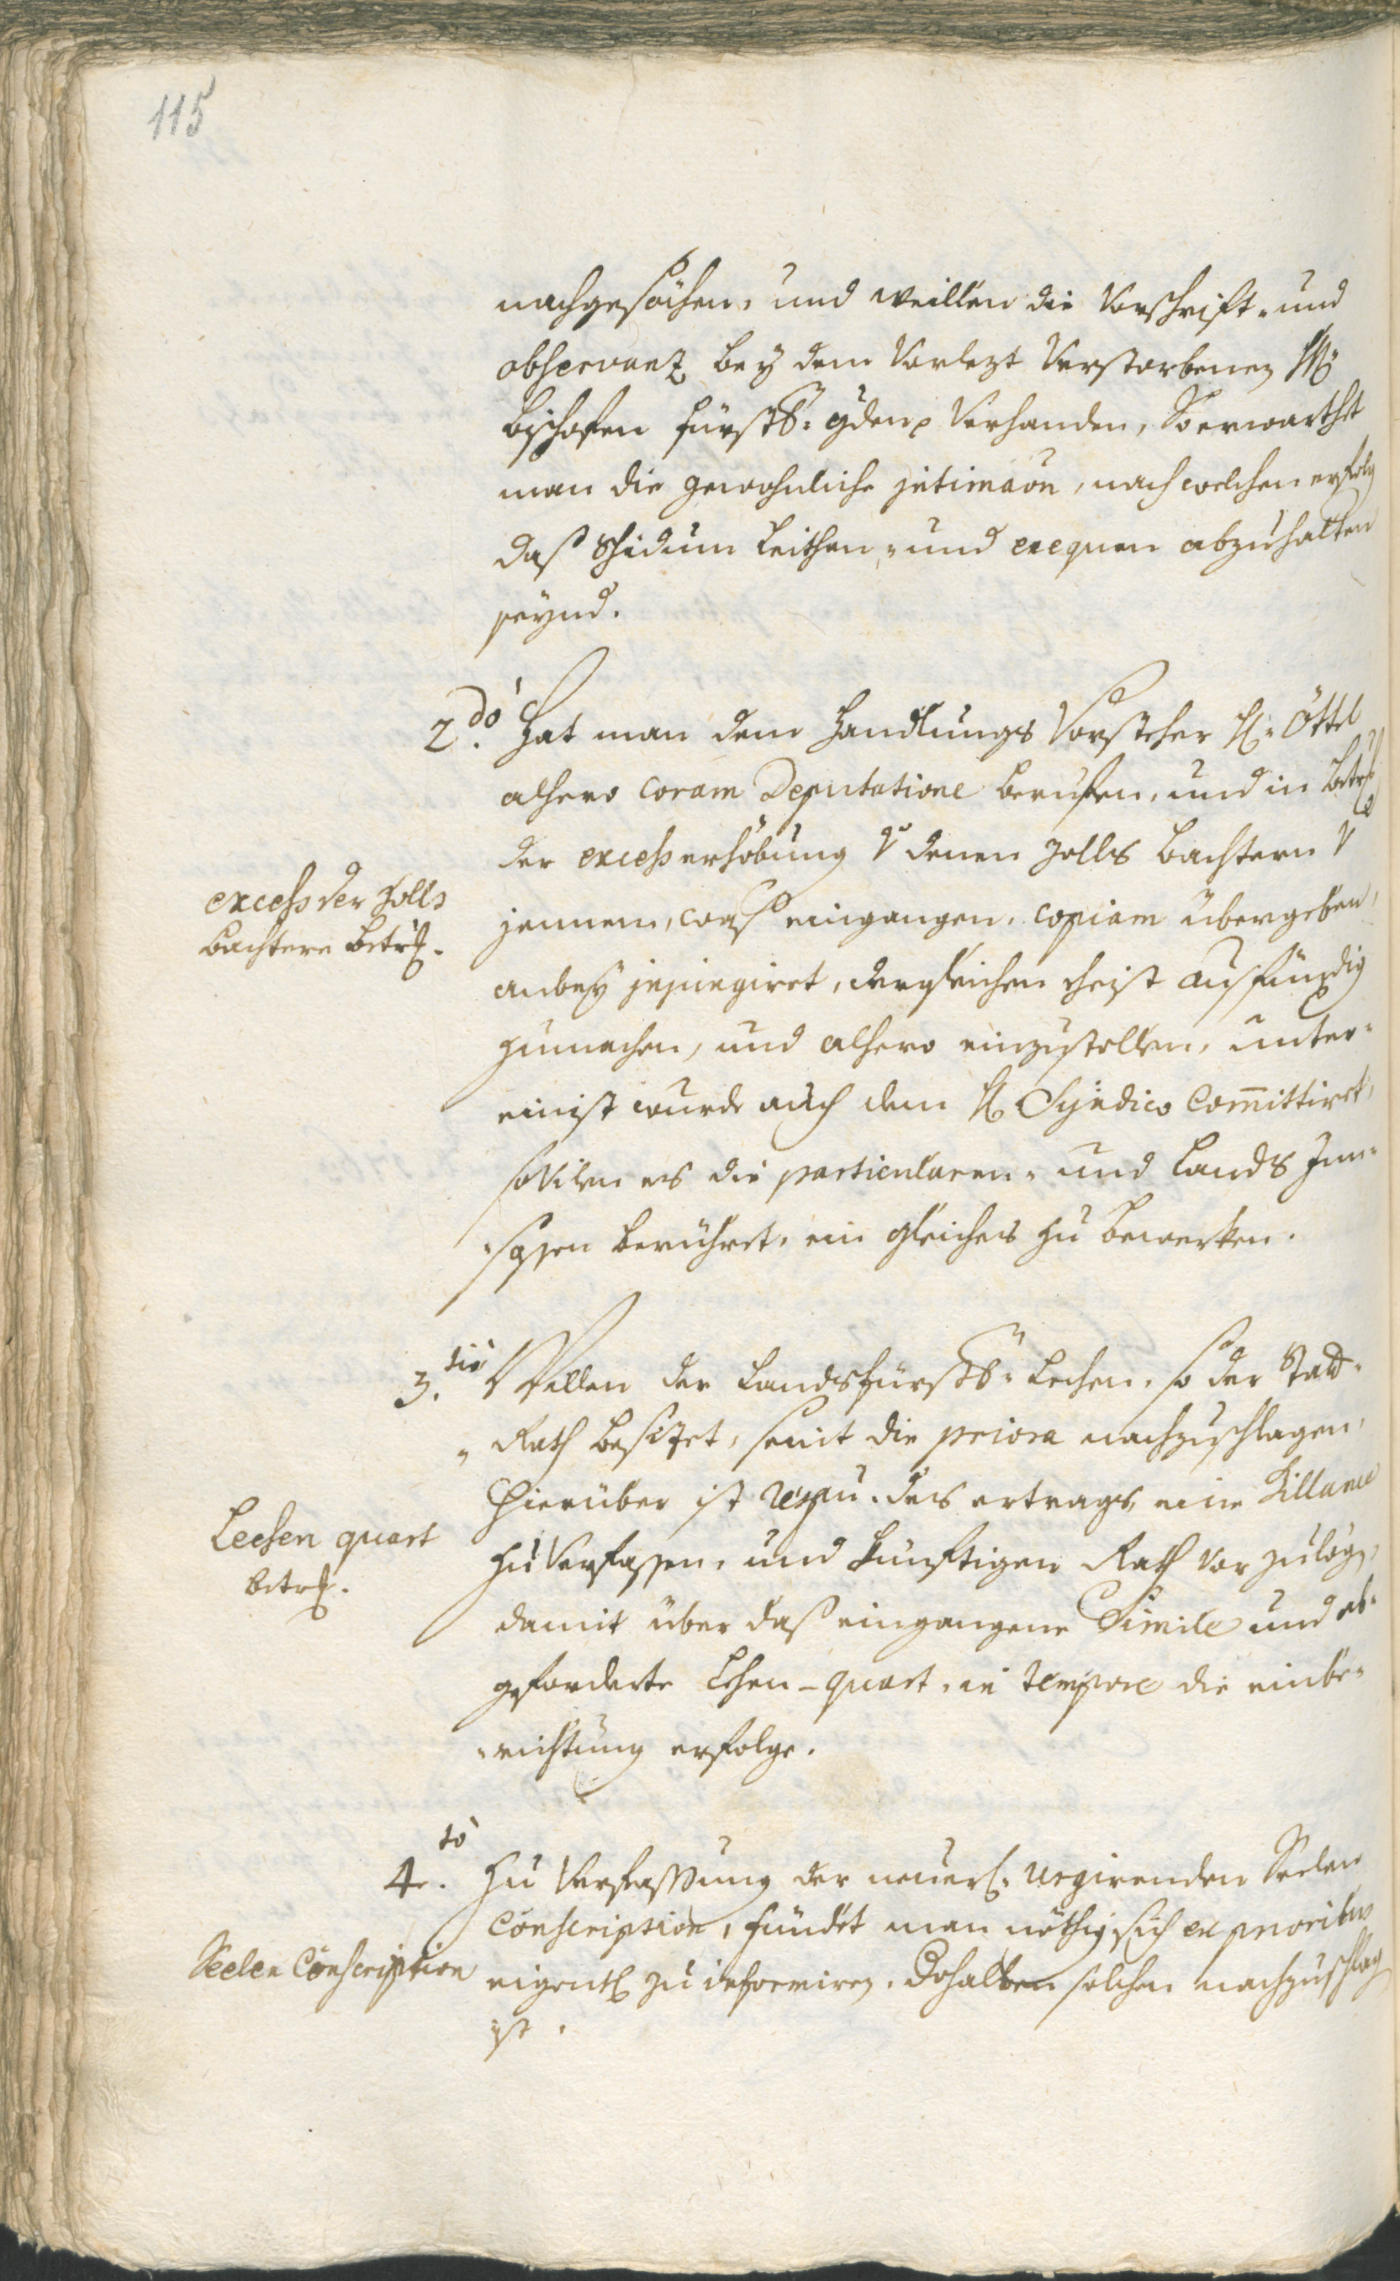 115
nachgesöchen, und weillen die Vorschrift- und
observanz bey dem Vorlezt Verstorbenen H:
Bischofen fürstl: gden Verhanden, So erwarthet
man die gewohnliche intimaon, nach welchen erfolg
daß Leithen- und exequien abzuhalten
seynd.
2.do Hat man dem Handlungs Vorsteher H: Öttl
alhero coram Deputatione beruffen, und in betref
der excess erhöbung denen Zolls bachtern
jennem, waß eingangen, copiam übergeben,
anbey injungiret, dergleichen theist ausfündig
zumachen, und alhero einzustellen, unter-
einist wurde auch dem H: Syndico Committiret,
sovilen es die particularen- und Lands Inn-
-sassen berühret, ein gleiches zu bewerken.
excess der Zolls
bachtere betref.
3.tiò Wellen der Landsfürstl: Lechen, so der Statt-
-Rath besizet, seint die priora nachzuschlagen,
hierüber ist des ertrags eine Billance
zu Verfassen, und künftigen Rath vor zulögen,
damit über daß eingangene Simile und ab-
geforderte Lehen-quart, in tempore die einbe-
-richtung erfolge.
Lechen quart
betref.
4.tò Zu Verfassung der neuerl: urgirenden Seelen
Conscription, fündet man nöthig sich ex prioribus
eigentl: zu informiren. Dohalben solchen nachzuschlag
ist.
Seelen Conscription